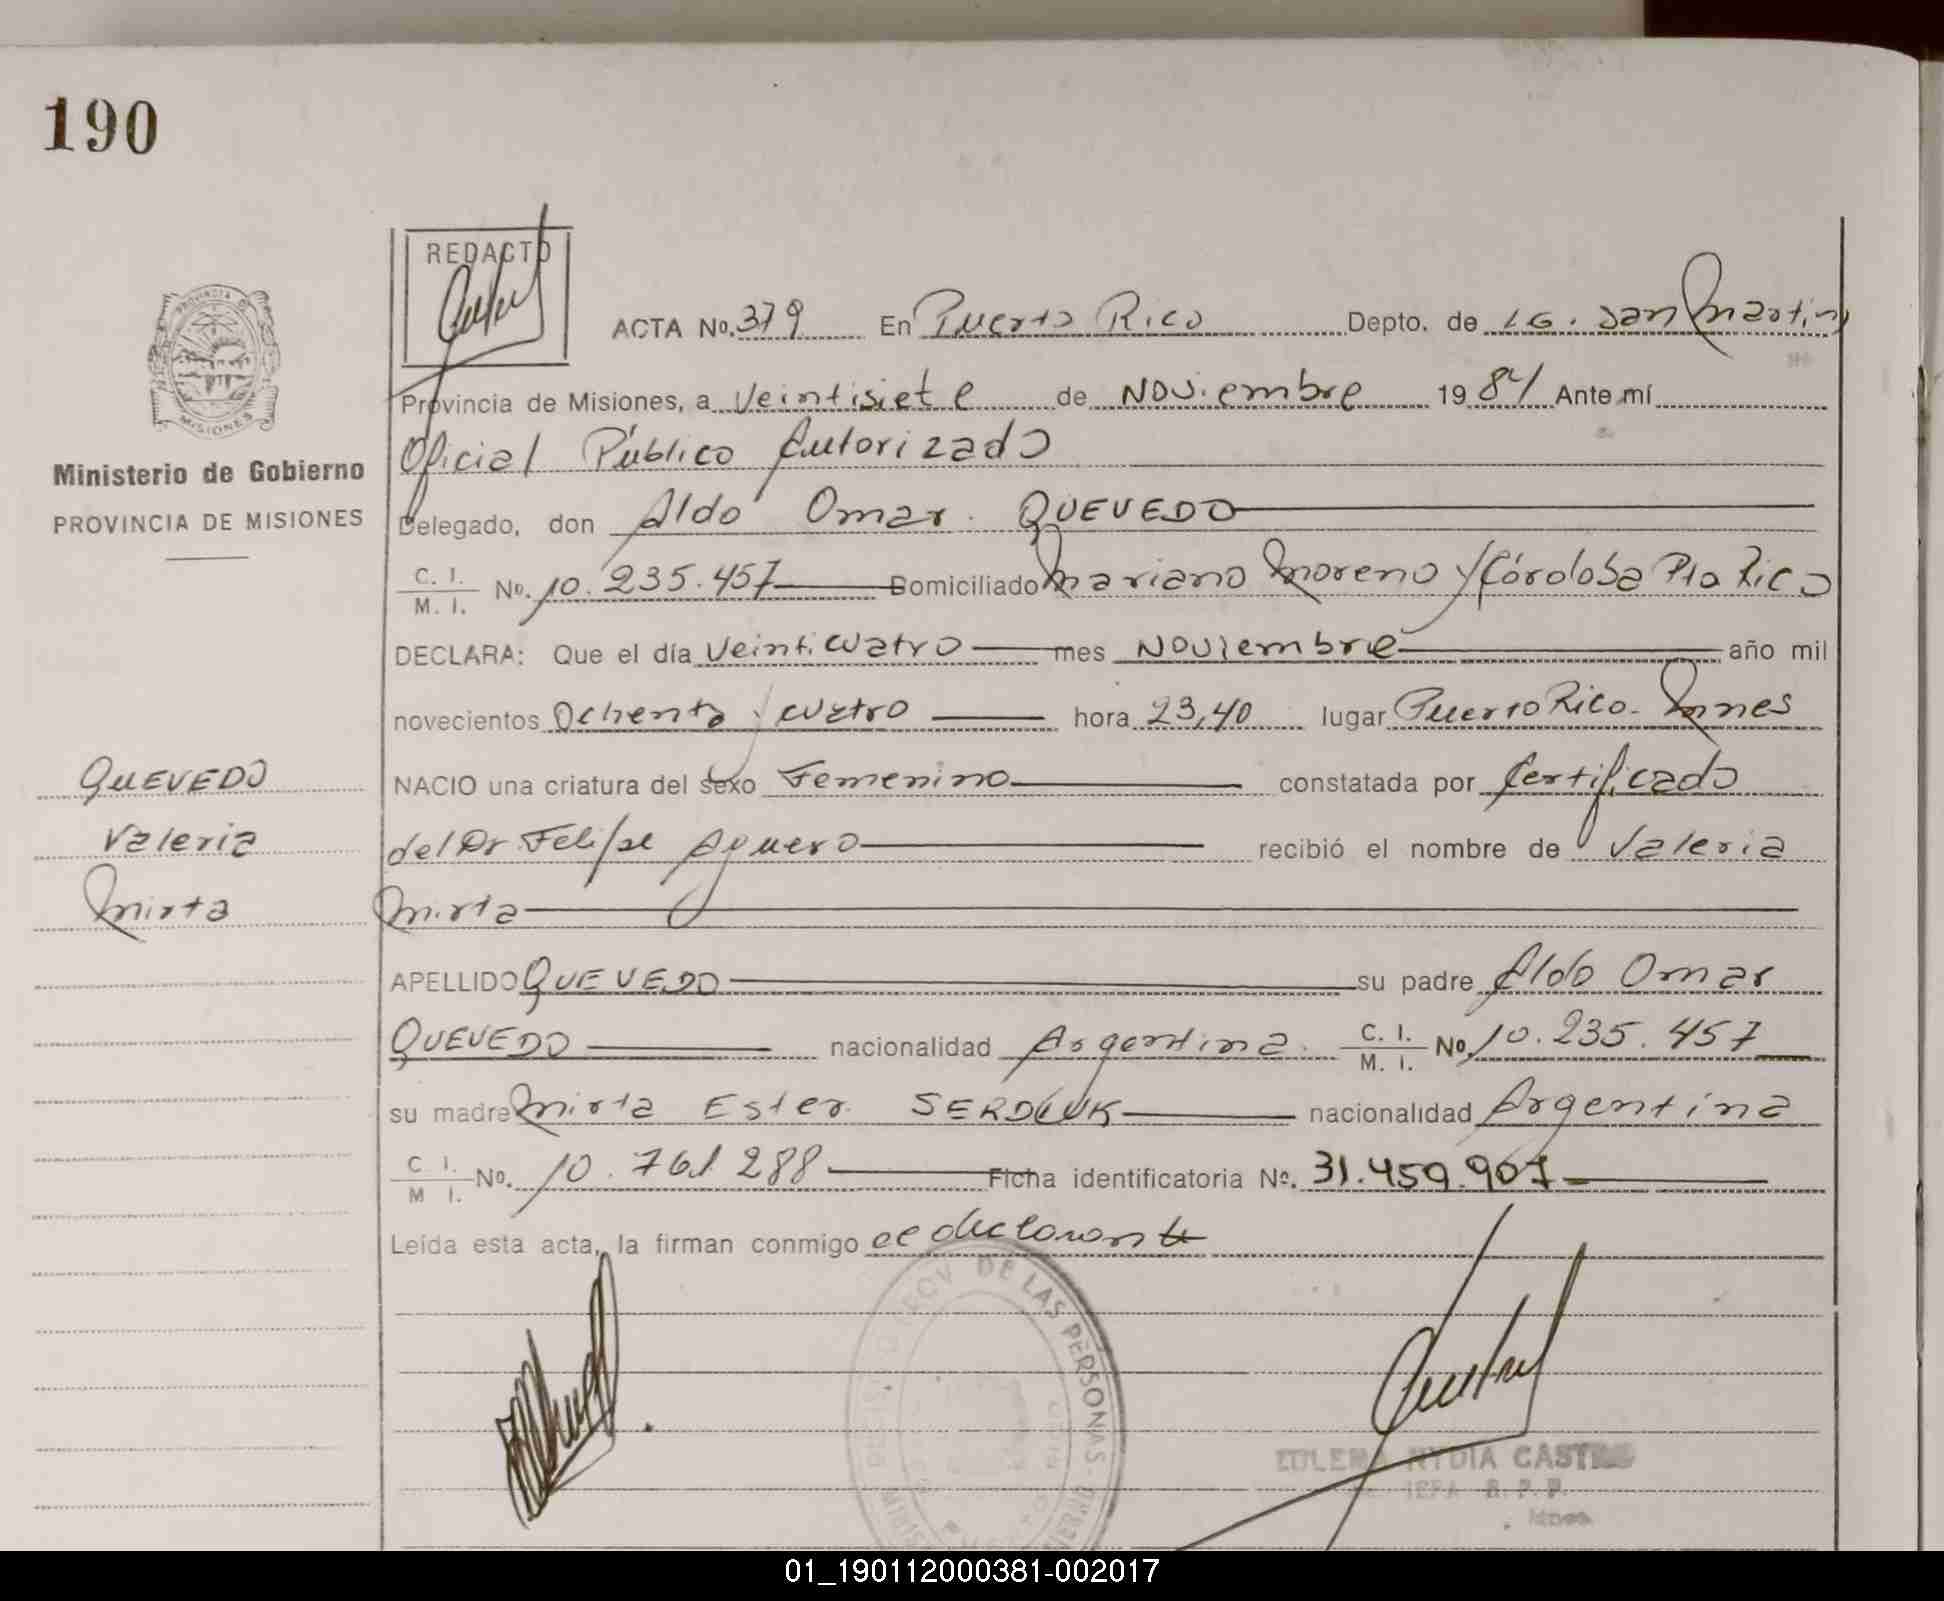 190
REDACTO
ACTA No. 379 En Puerto Rico Depto. de LG. San Martin
Provincia de Misiones, a Veintisiete de Noviembre 1984 Ante mí
Oficial Público Autorizado
Ministerio de Gobierno
PROVINCIA DE MISIONES
Delegado, don Aldo Omar QUEVEDO
C. I. / M. I. No. 10.235.457 Domiciliado Mariano Moreno y Córdoba Pto Rico
DECLARA: Que el día Veinticuatro mes Noviembre año mil
novecientos Ochenta y cuatro hora 23,40 lugar Puerto Rico. Mnes
QUEVEDO
Valeria
Mirta
NACIO una criatura del sexo Femenino constatada por Certificado
del Dr Felipe Aguero recibió el nombre de Valeria
Mirta
APELLIDO QUEVEDO su padre Aldo Omar
QUEVEDO nacionalidad Argentina. C. I. / M. I. No. 10.235.457
su madre Mirta Ester SERDIUK nacionalidad Argentina
C I. / M I. No. 10.761.288 Ficha identificatoria Nº. 31.459.907
Leída esta acta, la firman conmigo el declarante
DE LAS PERSONAS
NYDIA CASTRO
01_190112000381-002017